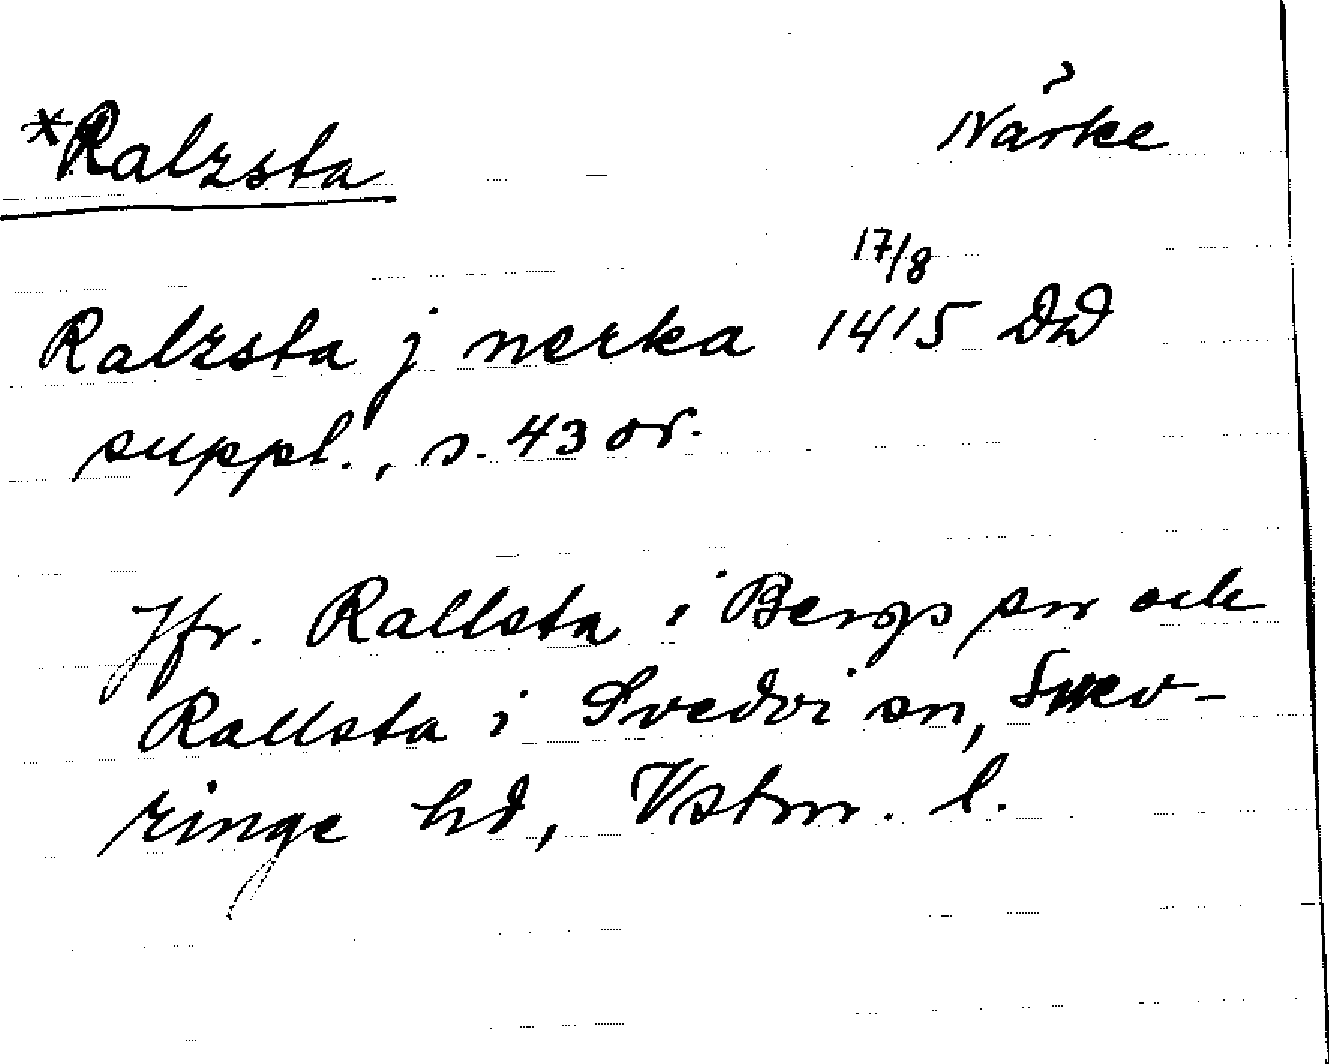 *Ralzsta
Närke
Ralzsta j nerka 17/8 1415 DD
suppl., s. 43 or.
Jfr. Rallsta i Bergs sn och
Rallsta i Svedvi sn, Snev-
ringe hd, Vstm. l.